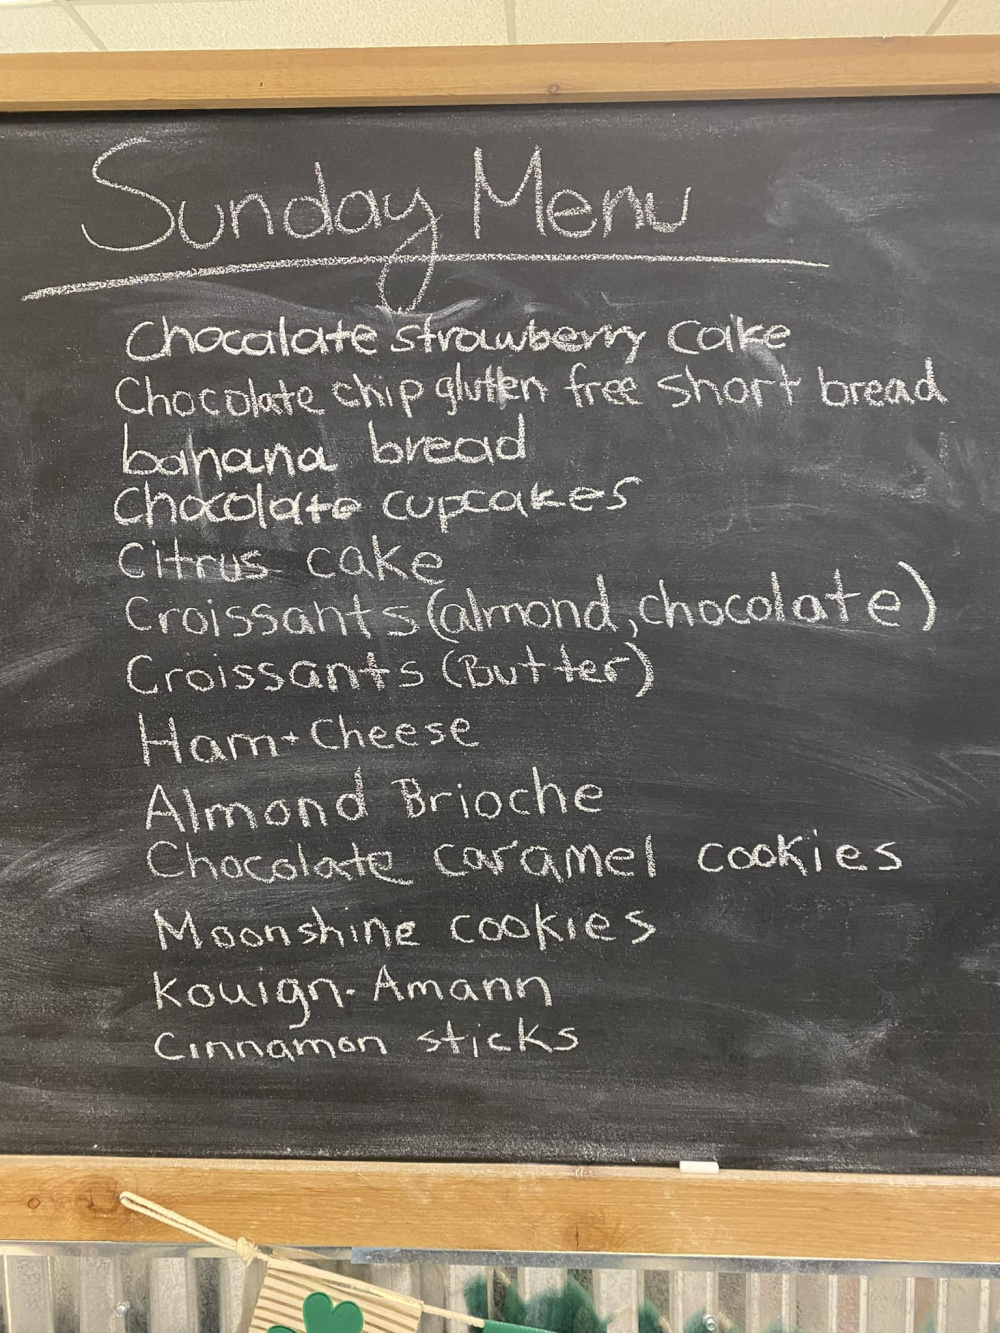 Sunday Menu
Chocolate strawberry cake
Chocolate chip gluten free short bread
banana bread
Chocolate cupcakes
Citrus cake
Croissants (almond, chocolate)
Croissants (Butter)
Ham + Cheese
Almond Brioche
Chocolate caramel cookies
Moonshine cookies
Kouign-Amann
Cinnamon sticks